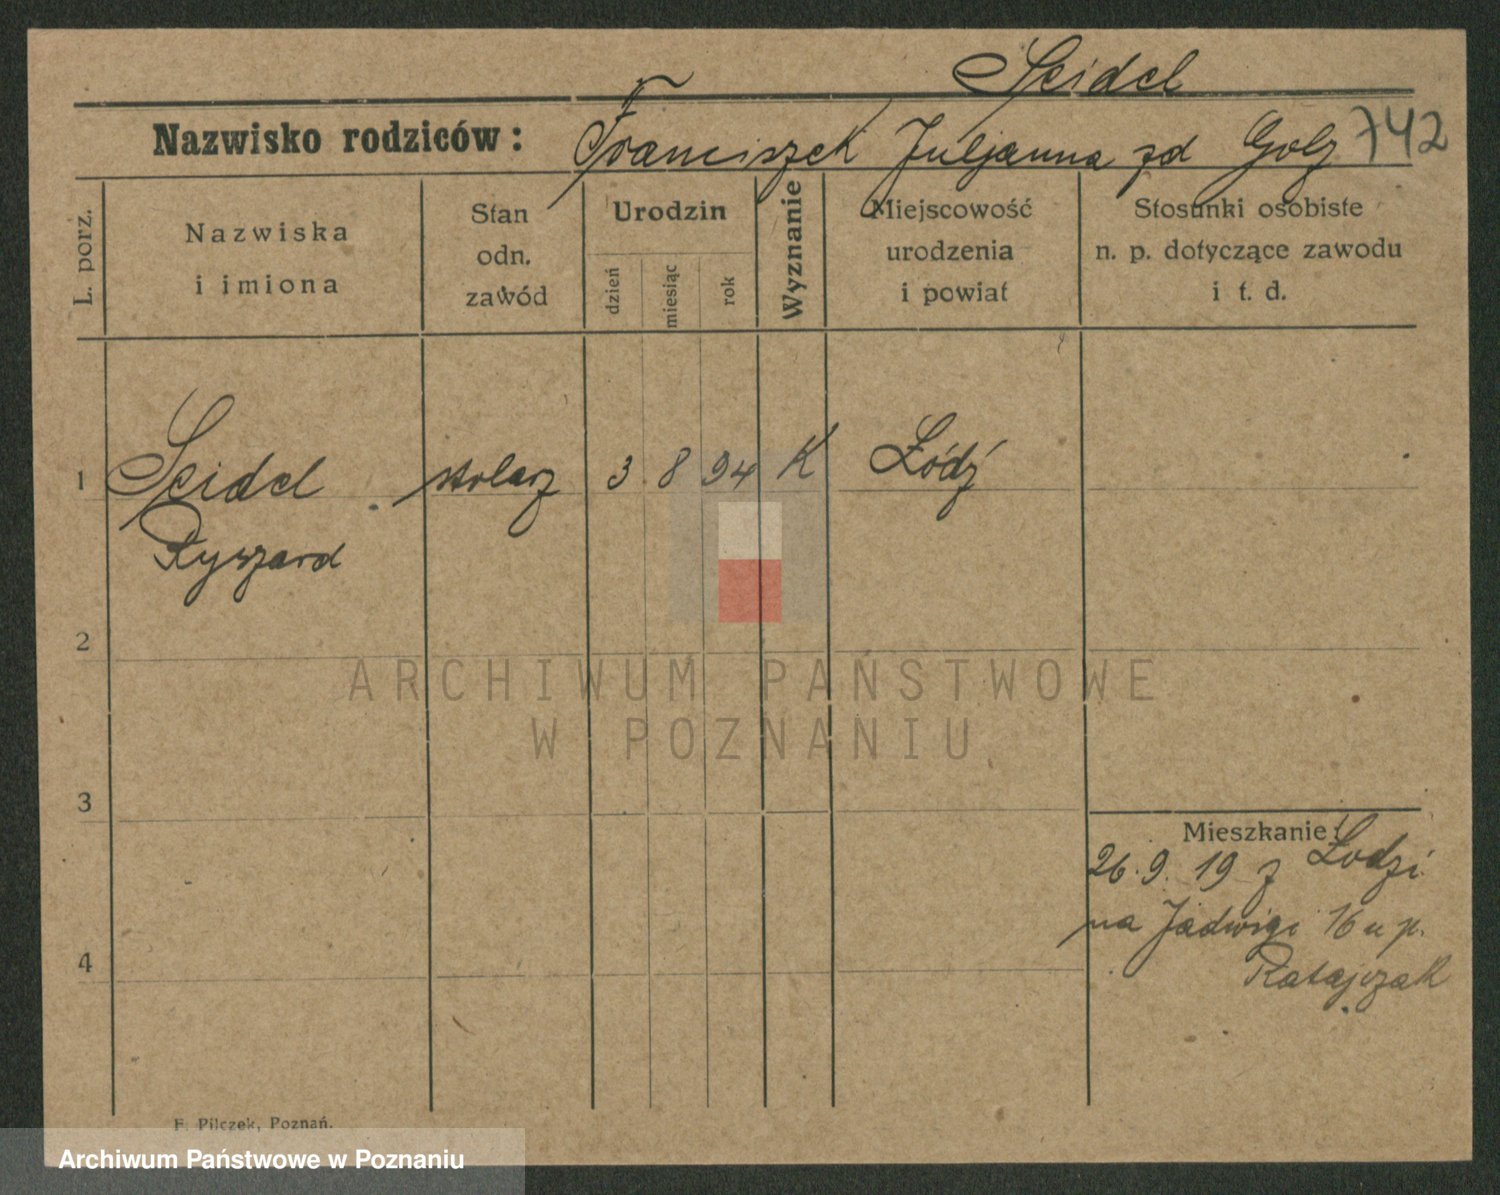 Seidel
Nazwisko rodziców: Franciszek Juljanna zd Golz 742
L. porz.
Nazwiska
i imiona
Stan
odn.
zawód
Urodzin
dzień
miesiąc
rok
Wyznanie
Miejscowość
urodzenia
i powiat
Stosunki osobiste
n. p. dotyczące zawodu
i t. d.
1 Seidel stolarz 3 8 94 K Łódź
Ryszard
2
ARCHIWUM PAŃSTWOWE
W POZNANIU
3
Mieszkanie:
26.9. 19 z Łodzi
na Jadwigi 16 u p.
4
Ratajczak
F. Pilczek, Poznań.
Archiwum Państwowe w Poznaniu